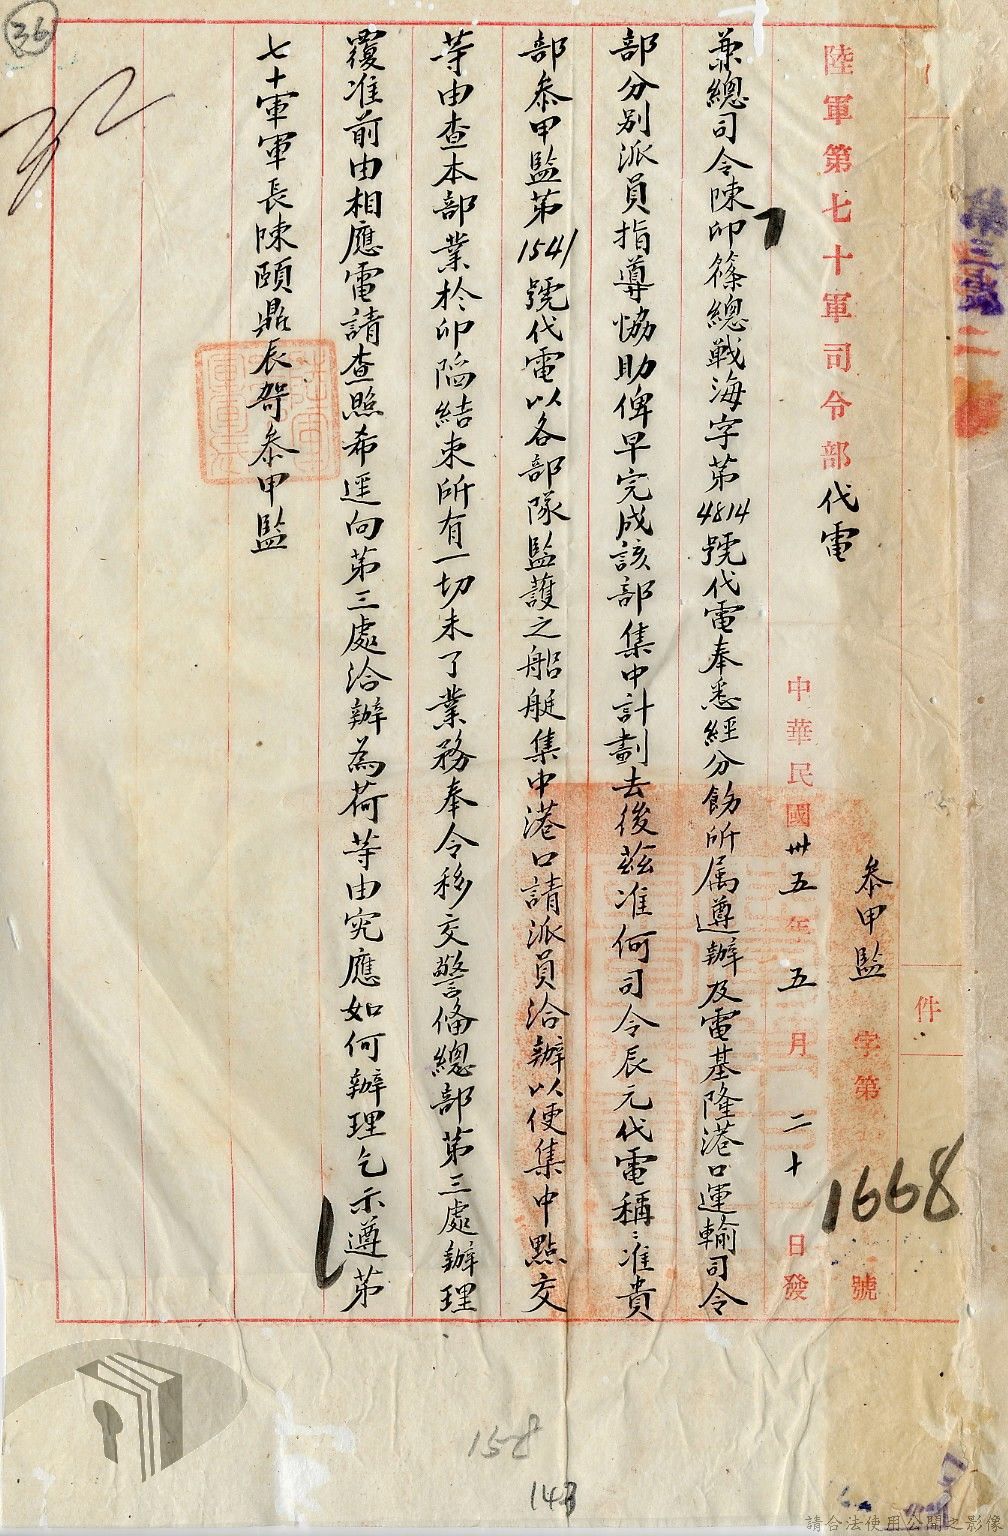 陸軍第七十軍司令部代電
件
參甲監字第1668號
中華民國卅五年五月二十日發
兼總司令陳卯篠總戰海字第4814號代電奉悉經分飭所属遵辦及電基隆港口運輸司令
部分別派員指導恊助俾早完成該部集中計劃去後茲准何司令辰元代電稱:准貴
部叅甲監第1541號代電以各部隊監護之船艇集中港口請派員洽辦以便集中點交
等由查本部業於卯陷結束所有一切未了業務奉令移交警俻總部第三處辦理
覆准前由相應電請查照希逕向第三處洽辦為荷等由究應如何辦理乞示遵第
七十軍軍長陳頤鼎辰哿叅甲監
36
158
143
請合法使用公開之影像